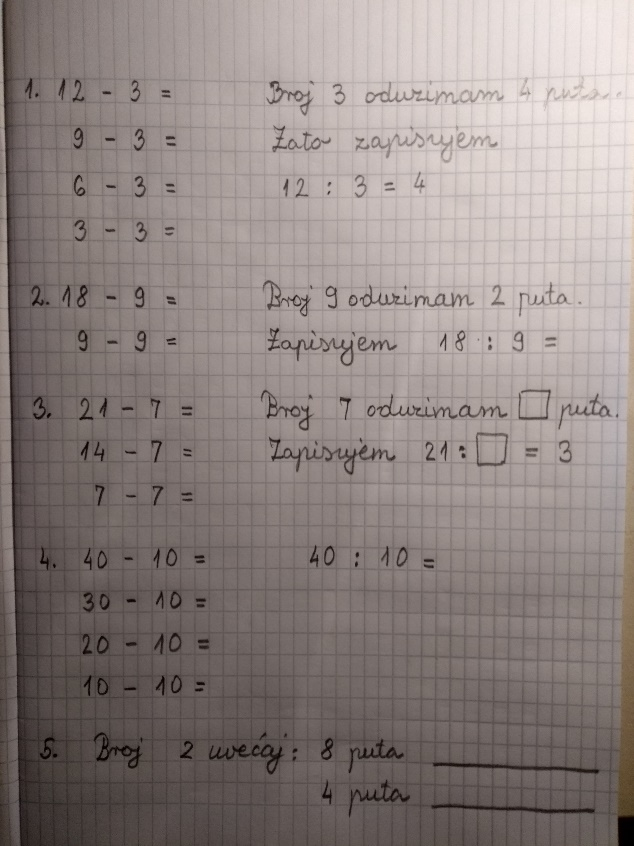 1. 12 - 3 = Broj 3 oduzimam 4 puta.
9 - 3 = Zato zapisujem
6 - 3 = 12 : 3 = 4
3 - 3 =
2. 18 - 9 = Broj 9 oduzimam 2 puta.
9 - 9 = Zapisujem 18 : 9 =
3. 21 - 7 = Broj 7 oduzimam □ puta.
14 - 7 = Zapisujem 21 : □ = 3
7 - 7 =
4. 40 - 10 = 40 : 10 =
30 - 10 =
20 - 10 =
10 - 10 =
5. Broj 2 uvećaj: 8 puta ______
4 puta ______